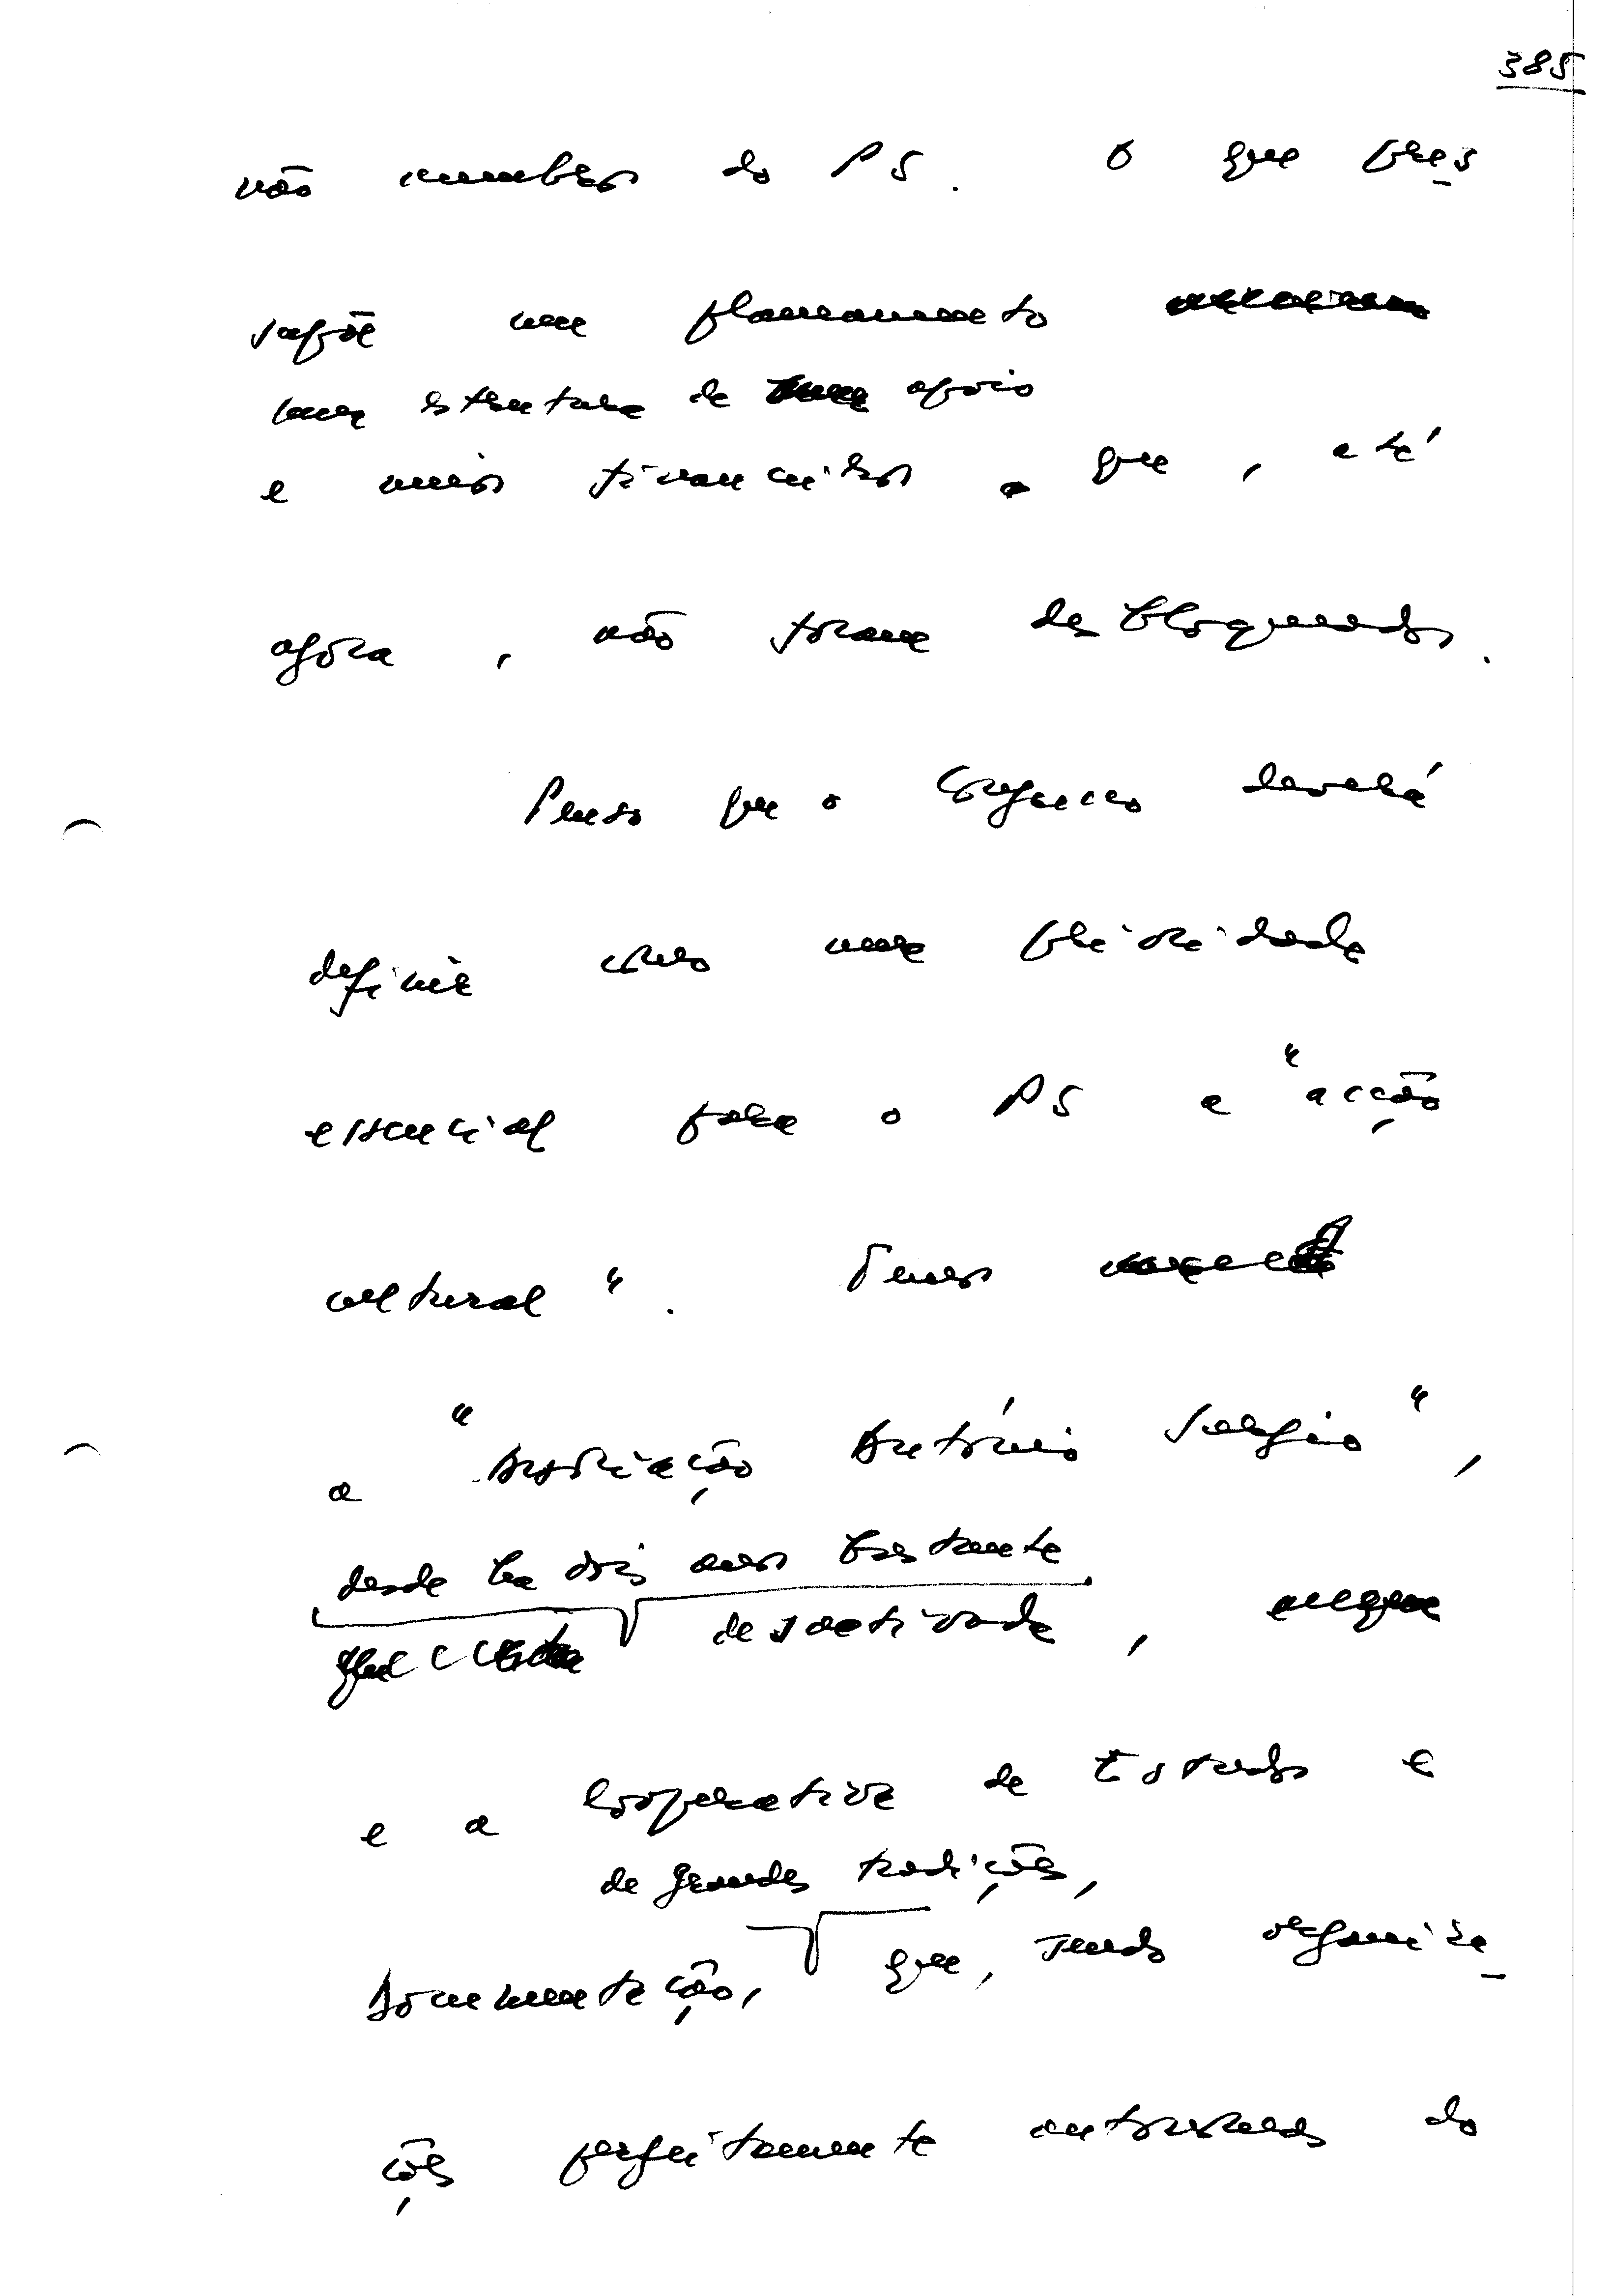 385
não membros do PS. O que pres
supõe um planeamento
uma estrutura de apoio
e meios financeiros que, até
agora, não foram desbloqueados.
Penso que o Congresso deverá
definir como uma prioridade
essencial para o PS a "acção
cultural". Temos
a "Associação António Sérgio",
desde há dois anos bastante
desactivada,
e a Cooperativa de Estudos e
de grandes tradições,
Documentação, que, sendo organiza_
ções perfeitamente autónomas do